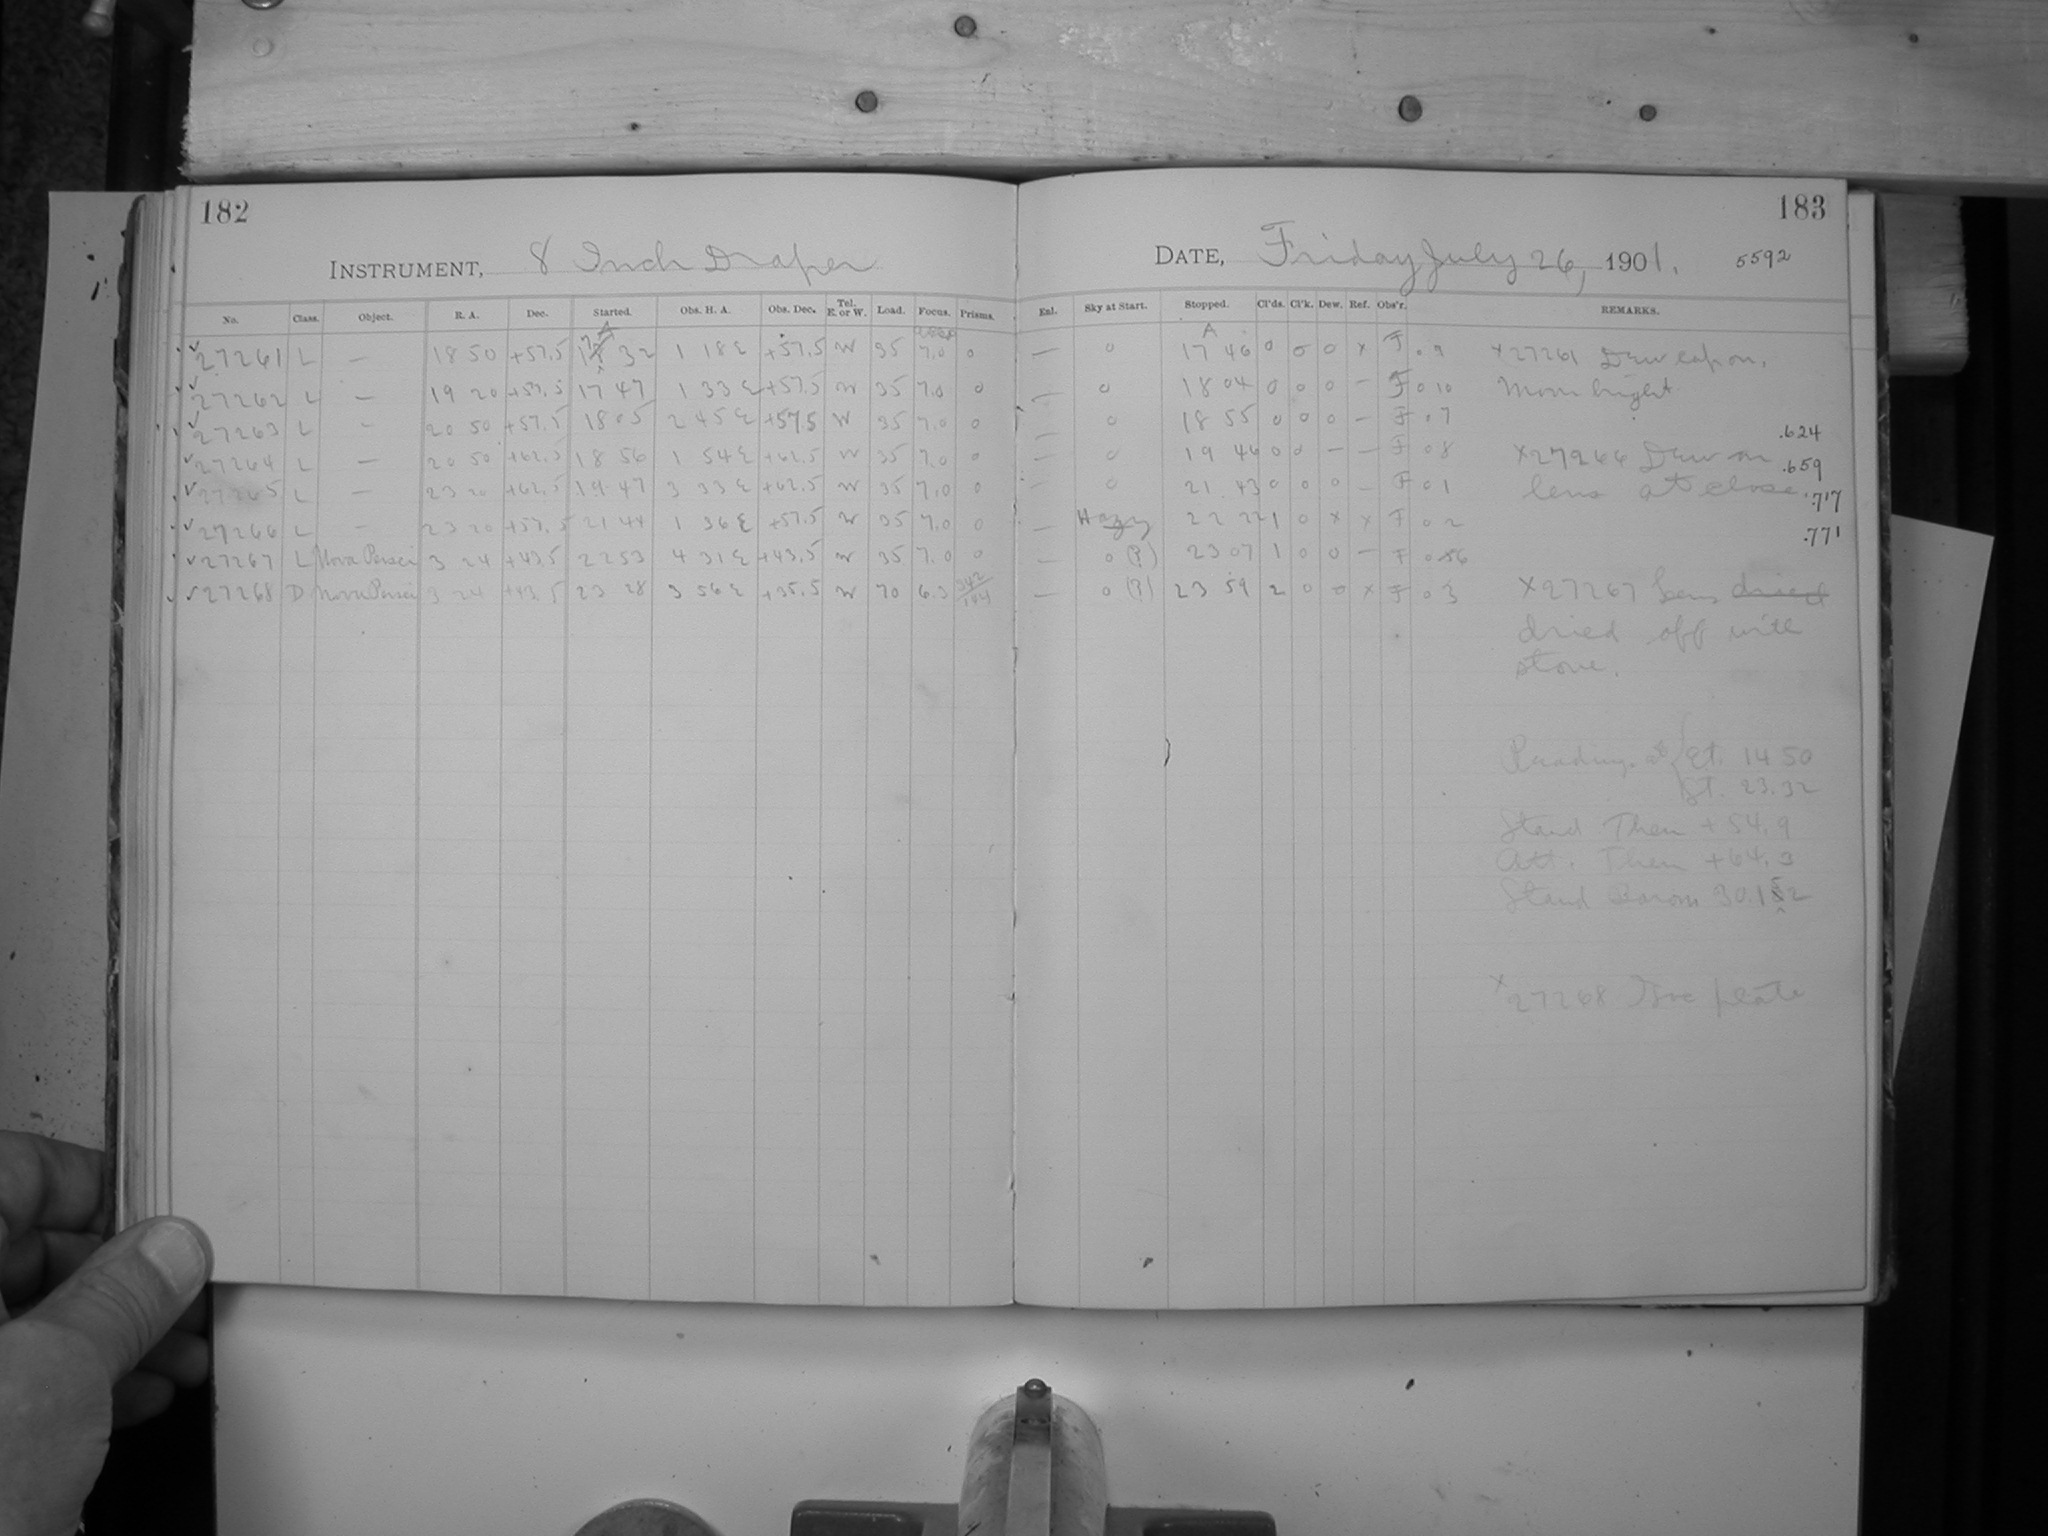 182
INSTRUMENT, 8 Inch Draper
No. Class. Object. R. A. Dec. Started. Obs. H. A. Obs. Dec. Tel. E. or W. Load. Focus. Prisms.
27261 L — 18 50 +57.5 32 1 18 E +57.5 W 35 7.0 0
27262 L — 19 20 +57.5 17 47 1 33 E +57.5 W 35 7.0 0
27263 L — 20 50 +57.5 18 05 2 45 E +57.5 W 35 7.0 0
27264 L — 20 50 +62.5 18 56 1 54 E +62.5 W 35 7.0 0
27265 L — 23 20 +62.5 19 47 3 33 E +62.5 W 35 7.0 0
27266 L — 23 20 +57.5 21 44 1 36 E +57.5 W 35 7.0 0
27267 L Nova Persei 3 24 +43.5 22 53 4 31 E +43.5 W 35 7.0 0
27268 D Nova Persei 3 24 +43.5 23 28 3 56 E +35.5 W 70 6.3 342/144
183
DATE, Friday July 26, 1901. 5592
Enl. Sky at Start. Stopped. Cl'ds. Cl'k. Dew. Ref. Obs'r. REMARKS.
A
— 0 17 46 0 0 0 x F 0 9
— 0 18 04 0 0 0 — F 0 10
— 0 18 55 0 0 0 — F 0 7
— 0 19 46 0 0 — — F 0 8
— 0 21 43 0 0 0 — F 0 1
— Hazy 22 22 1 0 x x F 0 2
— 0 (?) 23 07 1 0 0 — F 0
— 0 (?) 23 59 2 0 0 x F 0 3
x27261 Dew cap on.
Moon bright
.624
x27266 Dew on
.659
lens at close
.717
.771
x27267 Lens dried
dried off with
stove.
Readings at Et. 14 50
St. 23.32
Stand Ther +54.9
Att. Ther +64.3
Stand Barom
x27268 Iso plate